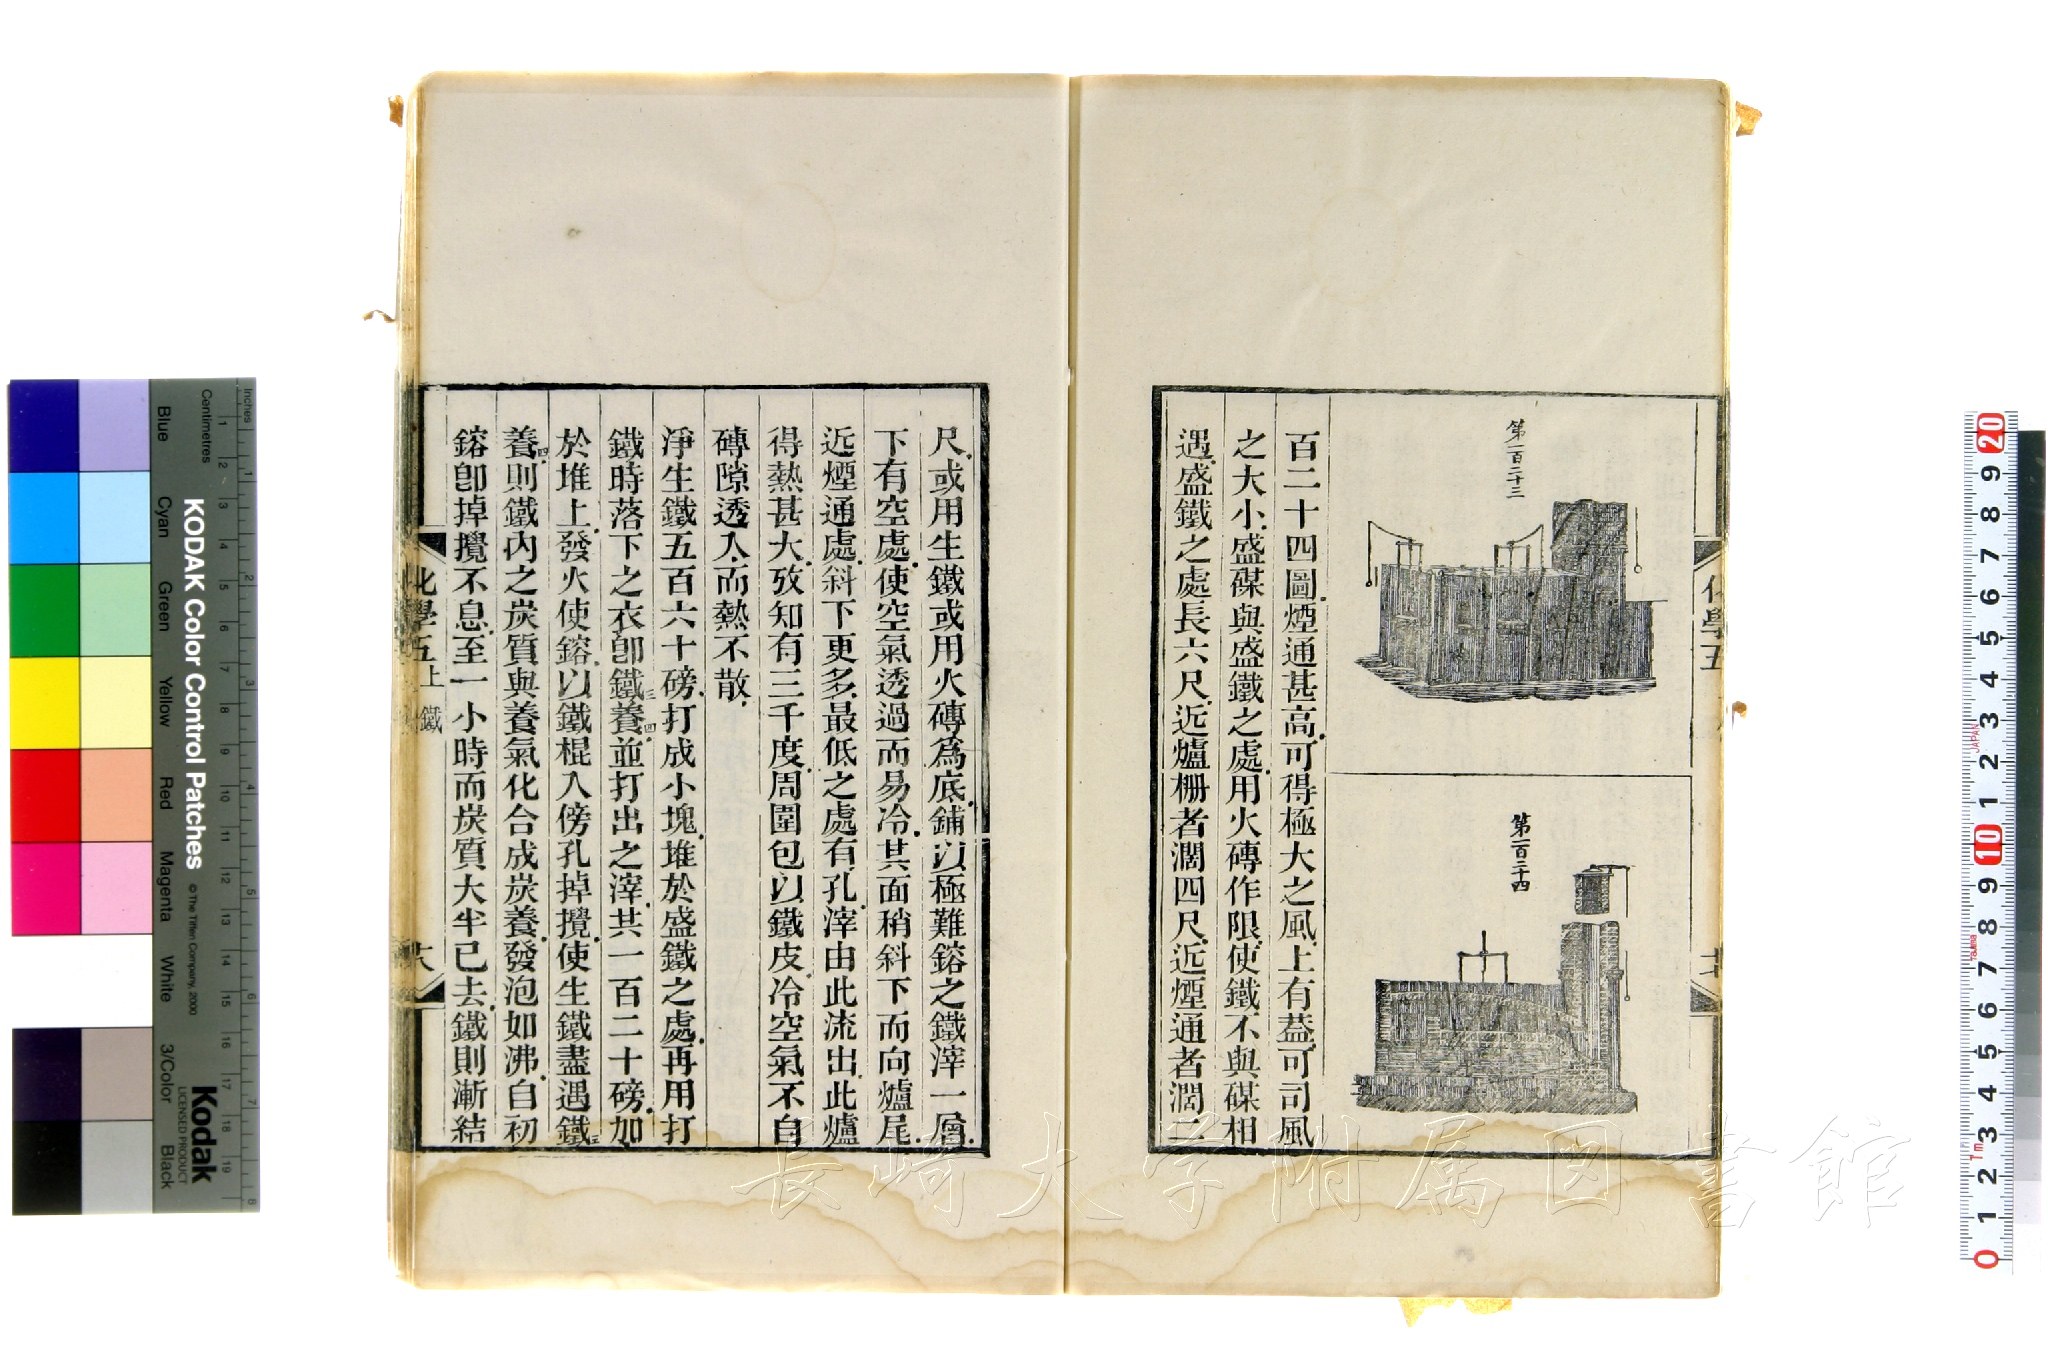 第一百二十三
第一百二十四
百二十四圖煙通甚高可得極大之風上有葢可司風
之大小盛煤與盛鐵之處用火磚作限使鐵不與煤相
遇盛鐵之處長六尺近爐柵者濶四尺近煙通者濶二
化學五
尺或用生鐵或用火磚爲底鋪以極難鎔之鐵滓一層
下有空處使空氣透過而易冷其面稍斜下而向爐尾
近煙通處斜下更多最低之處有孔滓由此流出此爐
得熱甚大攷知有三千度周圍包以鐵皮冷空氣不自
磚隙透入而熱不散
淨生鐵五百六十磅打成小塊堆於盛鐵之處再用打
鐵時落下之衣卽鐵三養四並打出之滓共一百二十磅加
於堆上發火使鎔以鐵棍入傍孔掉攪使生鐵盡遇鐵三
養四則鐵內之炭質與養氣化合成炭養發泡如沸自初
鎔卽掉攪不息至一小時而炭質大半已去鐵則漸結
化學五上 鐵
長崎大学附属図書館
KODAK Color Control Patches
© The Tiffen Company, 2000
Kodak
LICENSED PRODUCT
Inches
Centimetres
Blue
Cyan
Green
Yellow
Red
Magenta
White
3/Color
Black
1 2 3 4 5 6 7 8 9 10 11 12 13 14 15 16 17 18 19
1 2 3 4 5 6 7 8
20 9 8 7 6 5 4 3 2 1 10 9 8 7 6 5 4 3 2 1 0
JAPAN
1m